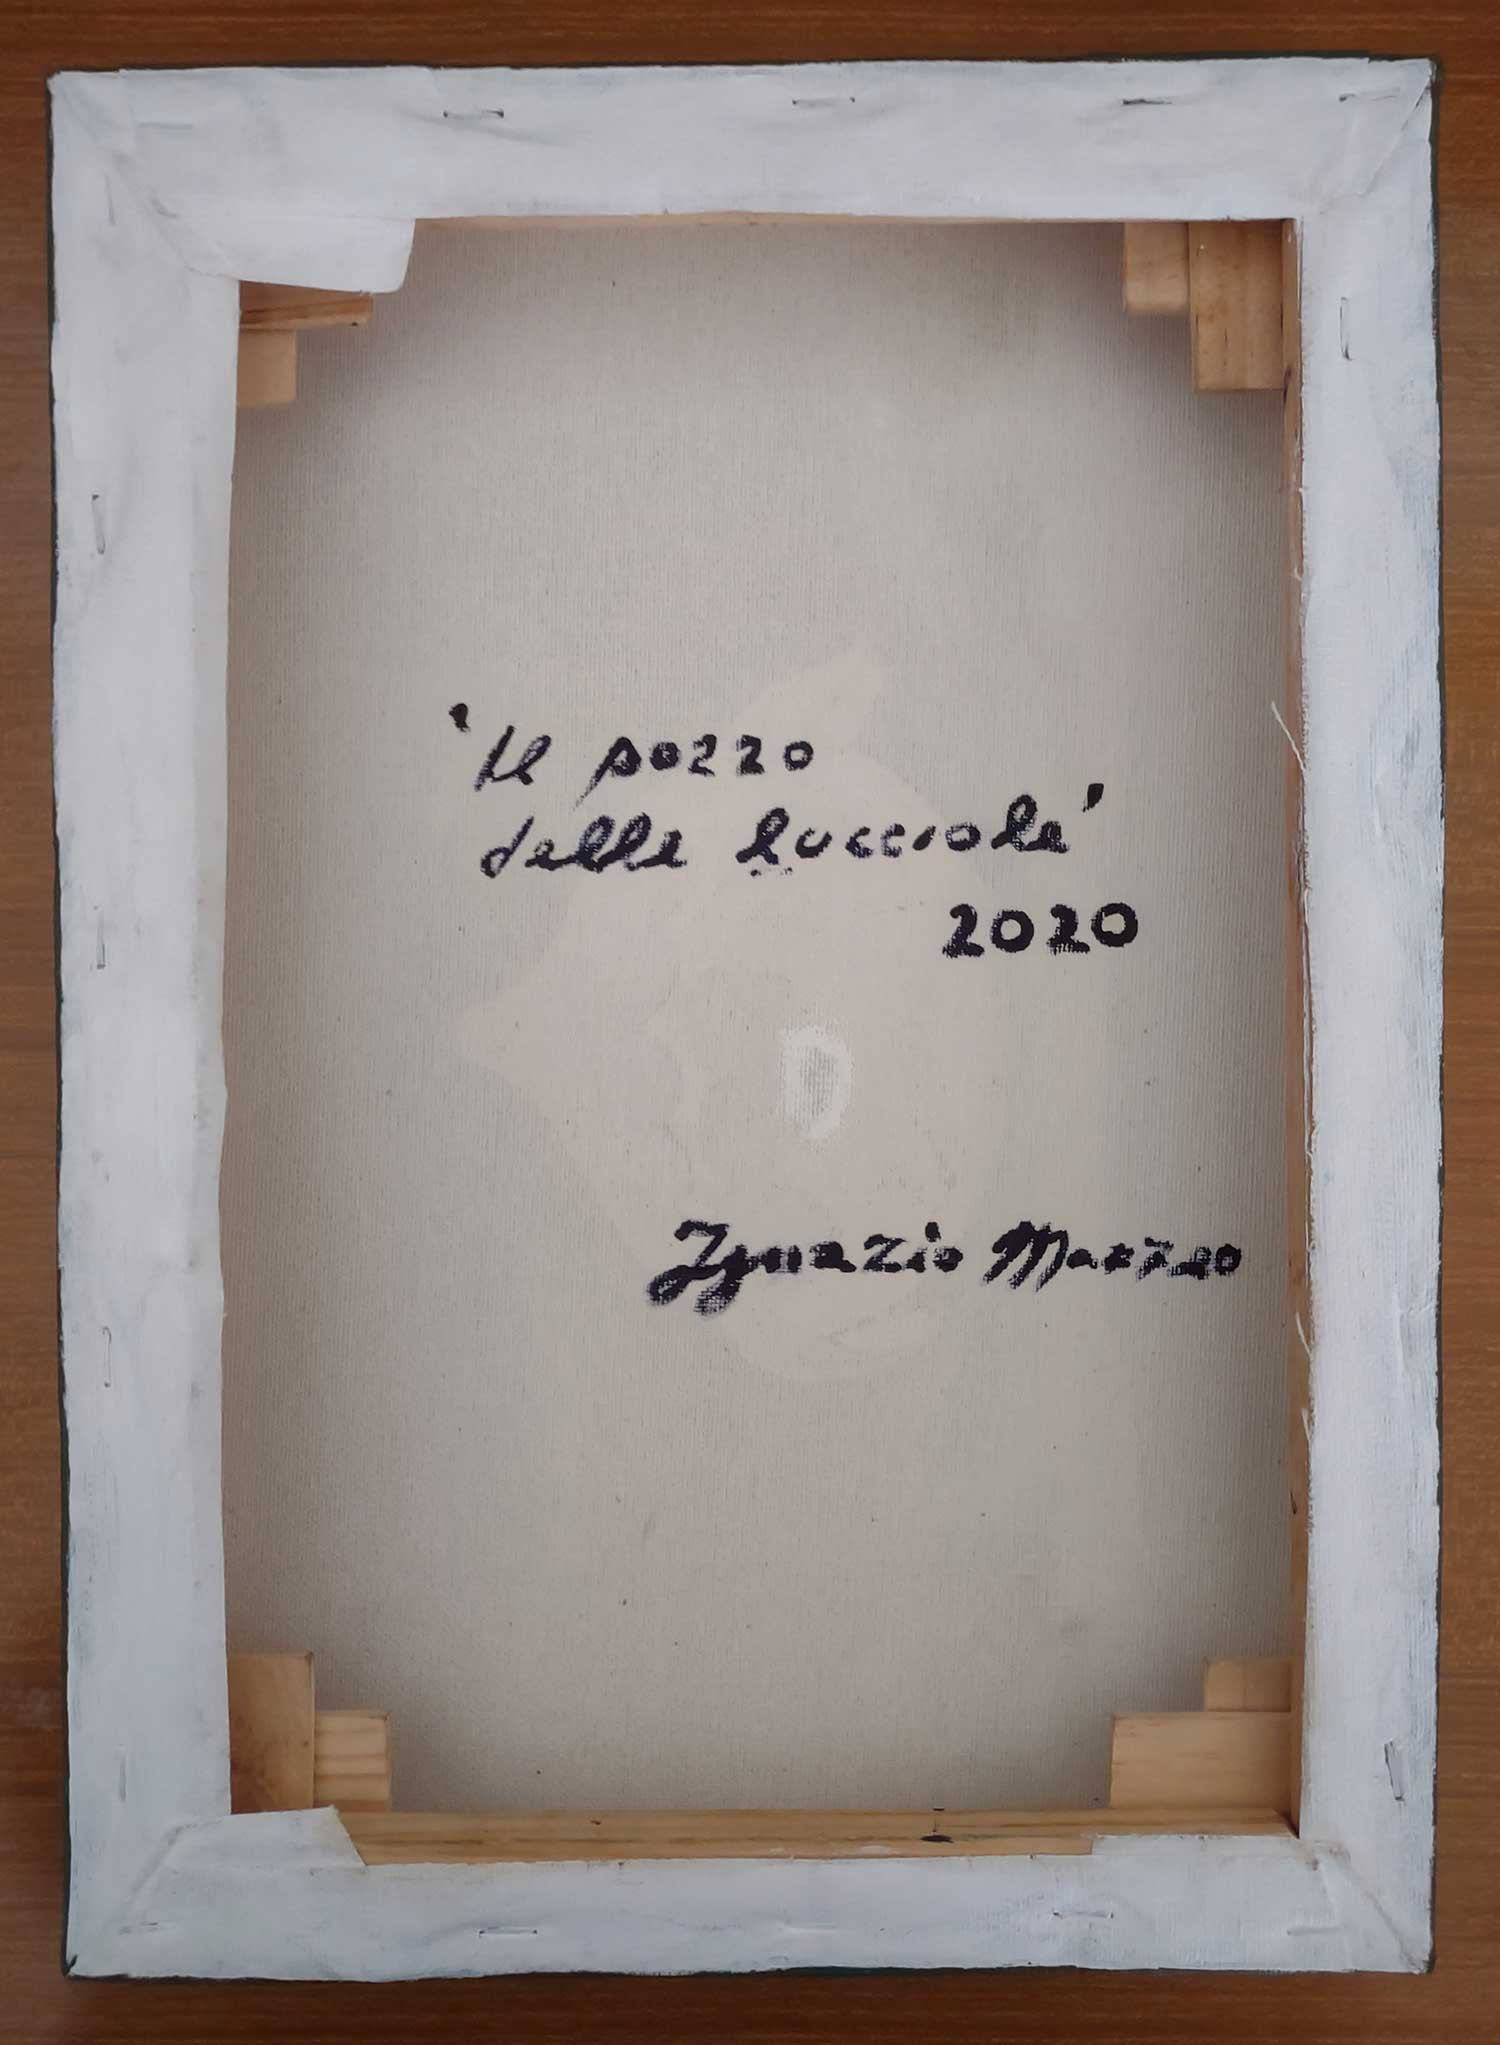 'Il pozzo
delle lucciole'
2020
Ignazio